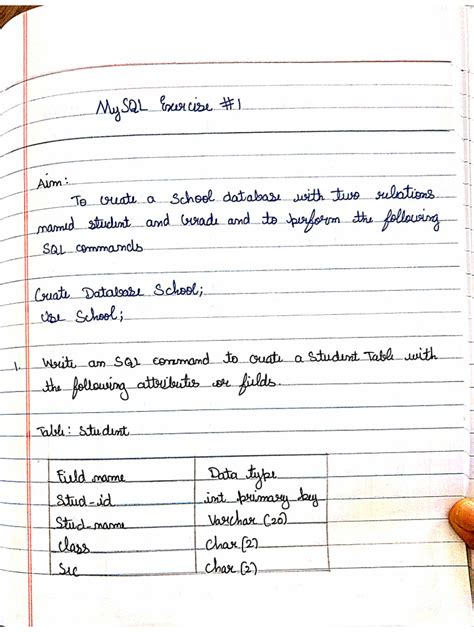 MySQL Exercise #1
Aim:
To create a School database with two relations
named student and Grade and to perform the following
SQL commands
Create Database School;
Use School;
1. Write an SQL command to create a Student Table with
the following attributes or fields.
Table: Student
Field name Data type
Stud-id int primary key
Stud-name Varchar (20)
class char (2)
Sec char (2)